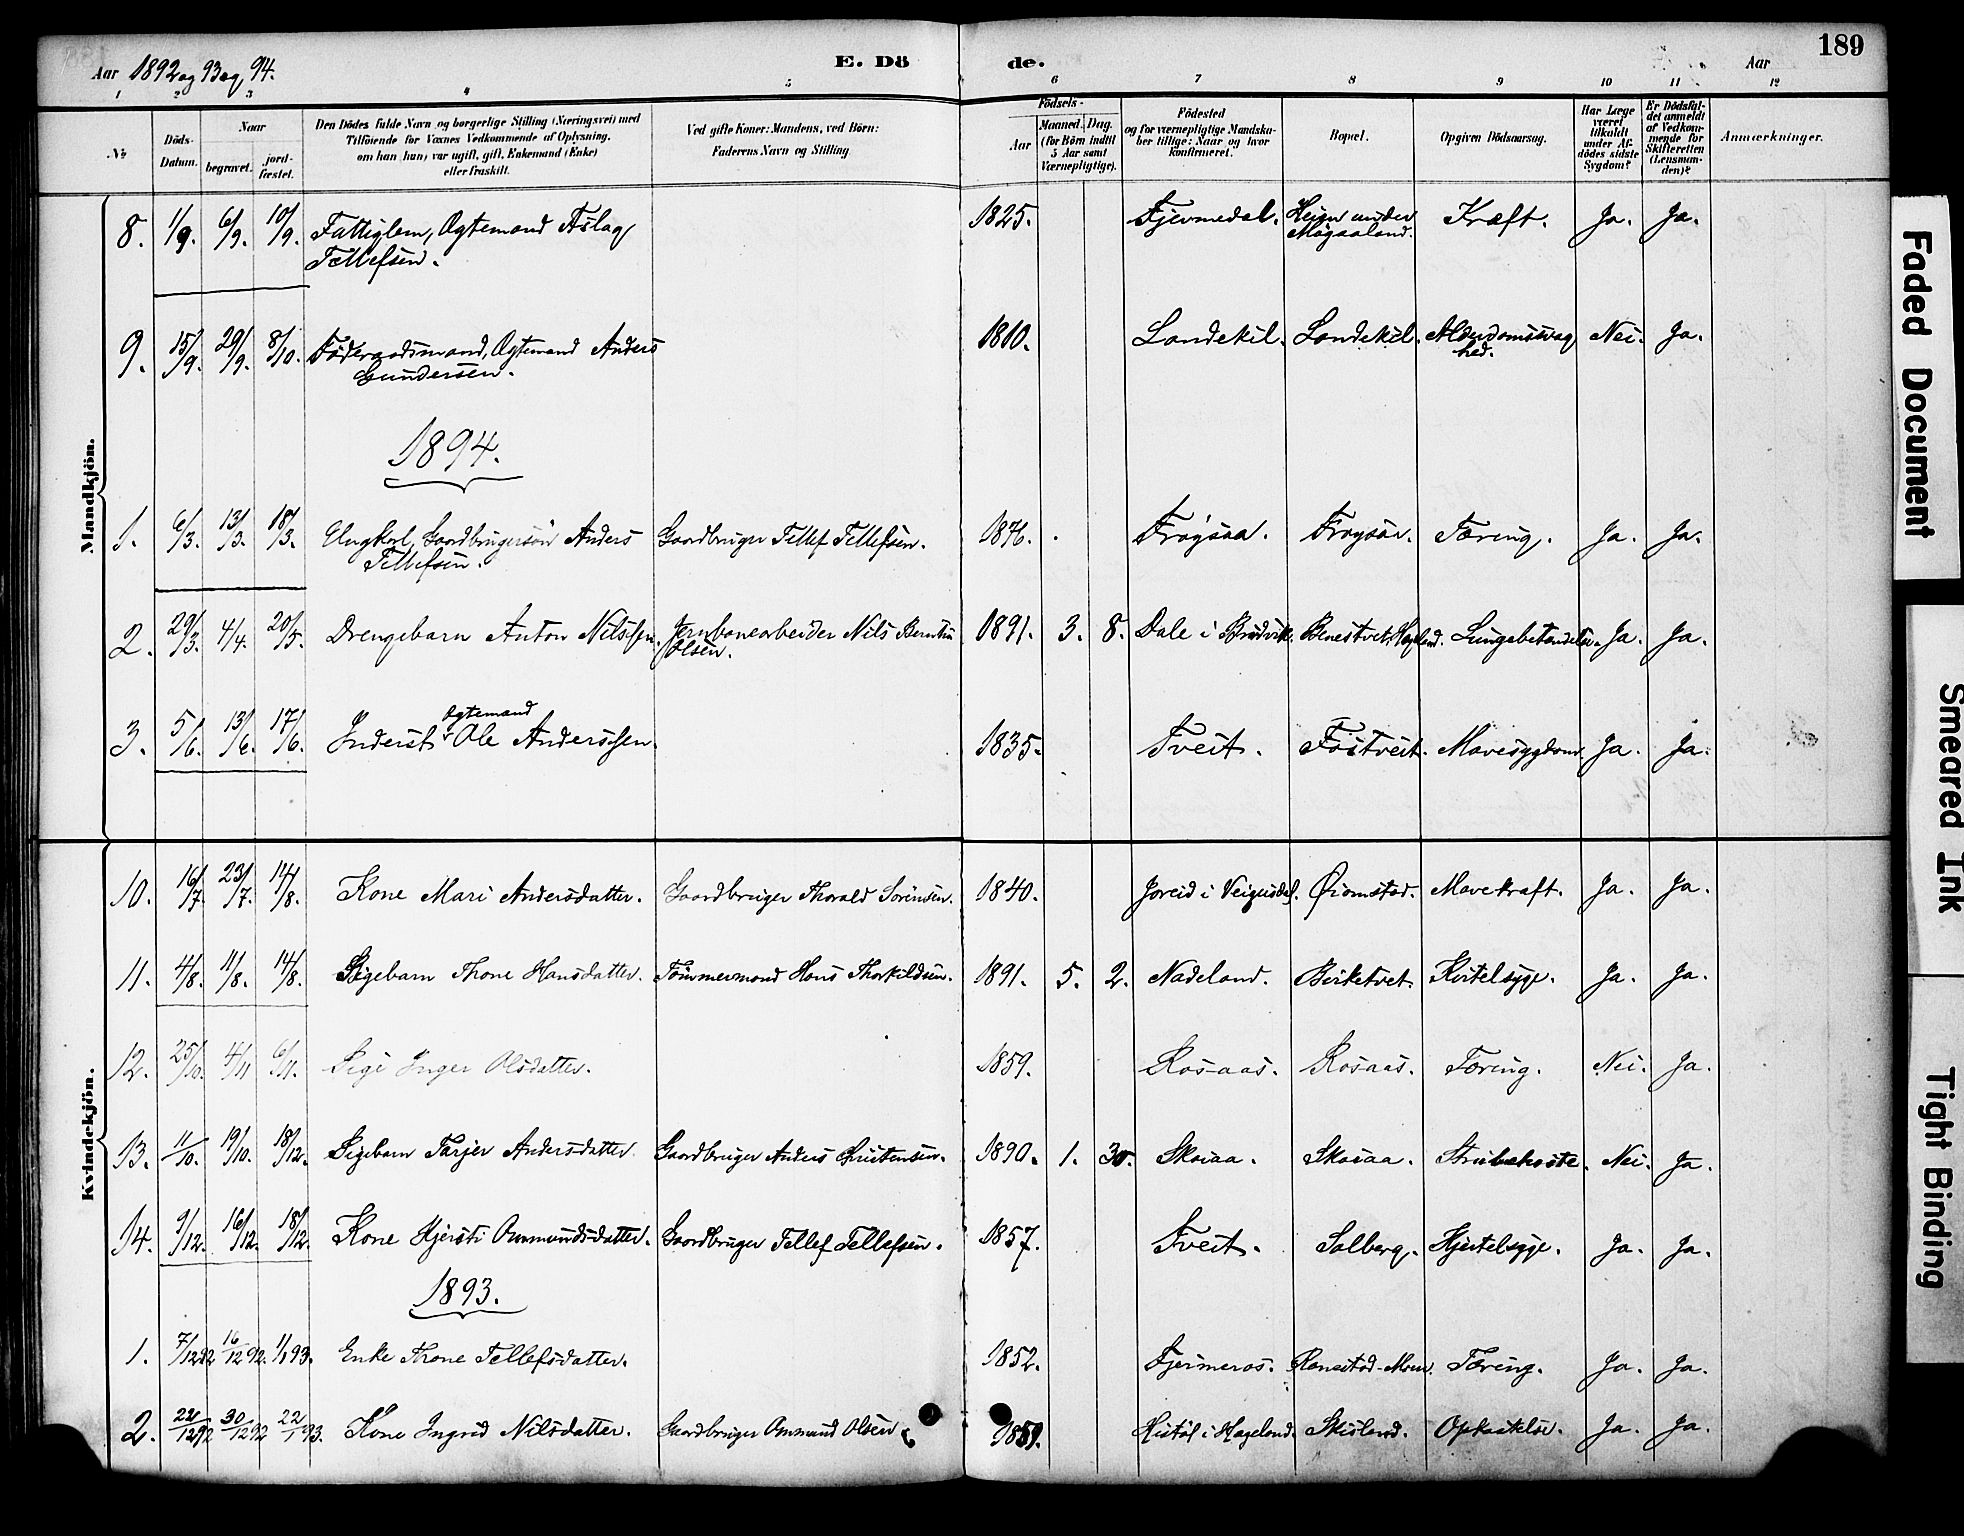 Aar 1892 og 93 og 94.
E. Dö
de.
Aar
189
1 2 3 4 5 6 7 8 9 10 11 12
No
Döds-Datum.
Naar
begravet.
jord-fæstet.
Den Dödes fulde Navn og borgerlige Stilling (Næringsvei) med
Tilföiende for Voxnes Vedkommende af Oplysning.
om han (hun) var ugift, gift, Enkemand (Enke)
eller fraskilt.
Ved gifte Koner: Mandens, ved Börn:
Faderens Navn og Stilling
Födsels-
Aar
Maaned. Dag.
(for Börn indtil
5 Aar samt
Værnepligtige).
Födested
og for værnepligtige Mandska-
ber tillige: Naar og hvor
konfirmeret.
Bopæl.
Opgiven Dödsaarsag.
Har Læge
været
tilkaldt
under Af-
dödes sidste
Sygdom?
Er Dödsfal-
det anmeldt
af Vedkom-
mende for
Skifteretten
(Lensman-
den)?
Anmærkninger.
Mandkjön.
8. 1/9. 6/9. 10/9. Fattiglem, Ægtemand Aslag 1825. Heien under Kræft. Ja. Ja.
Tellefsen.
9. 15/9. 29/9. 8/10. Föderaadsmand, Ægtemand Anders 1810. Landekil. Landekil. Alderdomssvag Nei. Ja.
Gundersen. hed.
1894.
1. 6/3. 13/3. 18/3. Ungkarl, Gaardbrugersön Anders Gaardbruger Tellef Tellefsen. 1876. Frøysaa. Frøysaa. Tæring. Ja. Ja.
Tellefsen.
2. 29/3. 4/4. 20/5. Drengebarn Anton Nilssen. Jernbanearbeider Nils 1891. 3. 8. Dale i Lungebetændelse. Ja. Ja.
Olsen.
3. 5/6. 13/6. 17/6. Inderst Ægtemand Ole Anderssen. 1835. Tveit. Mavesygdom. Ja. Ja.
Kvindekjön.
10. 16/7. 23/7. 14/8. Kone Mari Andersdatter. Gaardbruger Thorald Sörensen. 1840. Mavekræft. Ja. Ja.
11. 4/8. 11/8. 14/8. Pigebarn Thone Hansdatter. Tömmermand Hans Thorkildsen. 1891. 5. 2. Nadeland. Birketvet. Kirtelsyge. Ja. Ja.
12. 25/10. 4/11 6/11. Pige Inger Olsdatter. 1859. Rosaas. Rosaas. Tæring. Nei. Ja.
13. 11/10. 19/10. 18/12. Pigebarn Tarjer Andersdatter. Gaardbruger Anders Kristensen. 1890. 1. 30. Skaiaa. Skaiaa. Strubehoste. Nei. Ja.
14. 9/12. 16/12. 18/12. Kone Kjersti Ommundsdatter. Gaardbruger Tellef Tellefsen. 1857. Tveit. Solberg. Hjertelsyge. Ja. Ja.
1893.
1. 7/12 92 16/12 92. 1/1 93. Enke Thone Tellefsdatter. 1852. Fjermeros. Tæring. Ja. Ja.
2. 22/12 92 30/12 92 22/1 93. Kone Ingrid Nilsdatter. Gaardbruger Ommund Olsen 1859. Skisland. Ja. Ja.
Faded Document
Smeared Ink
Tight Binding